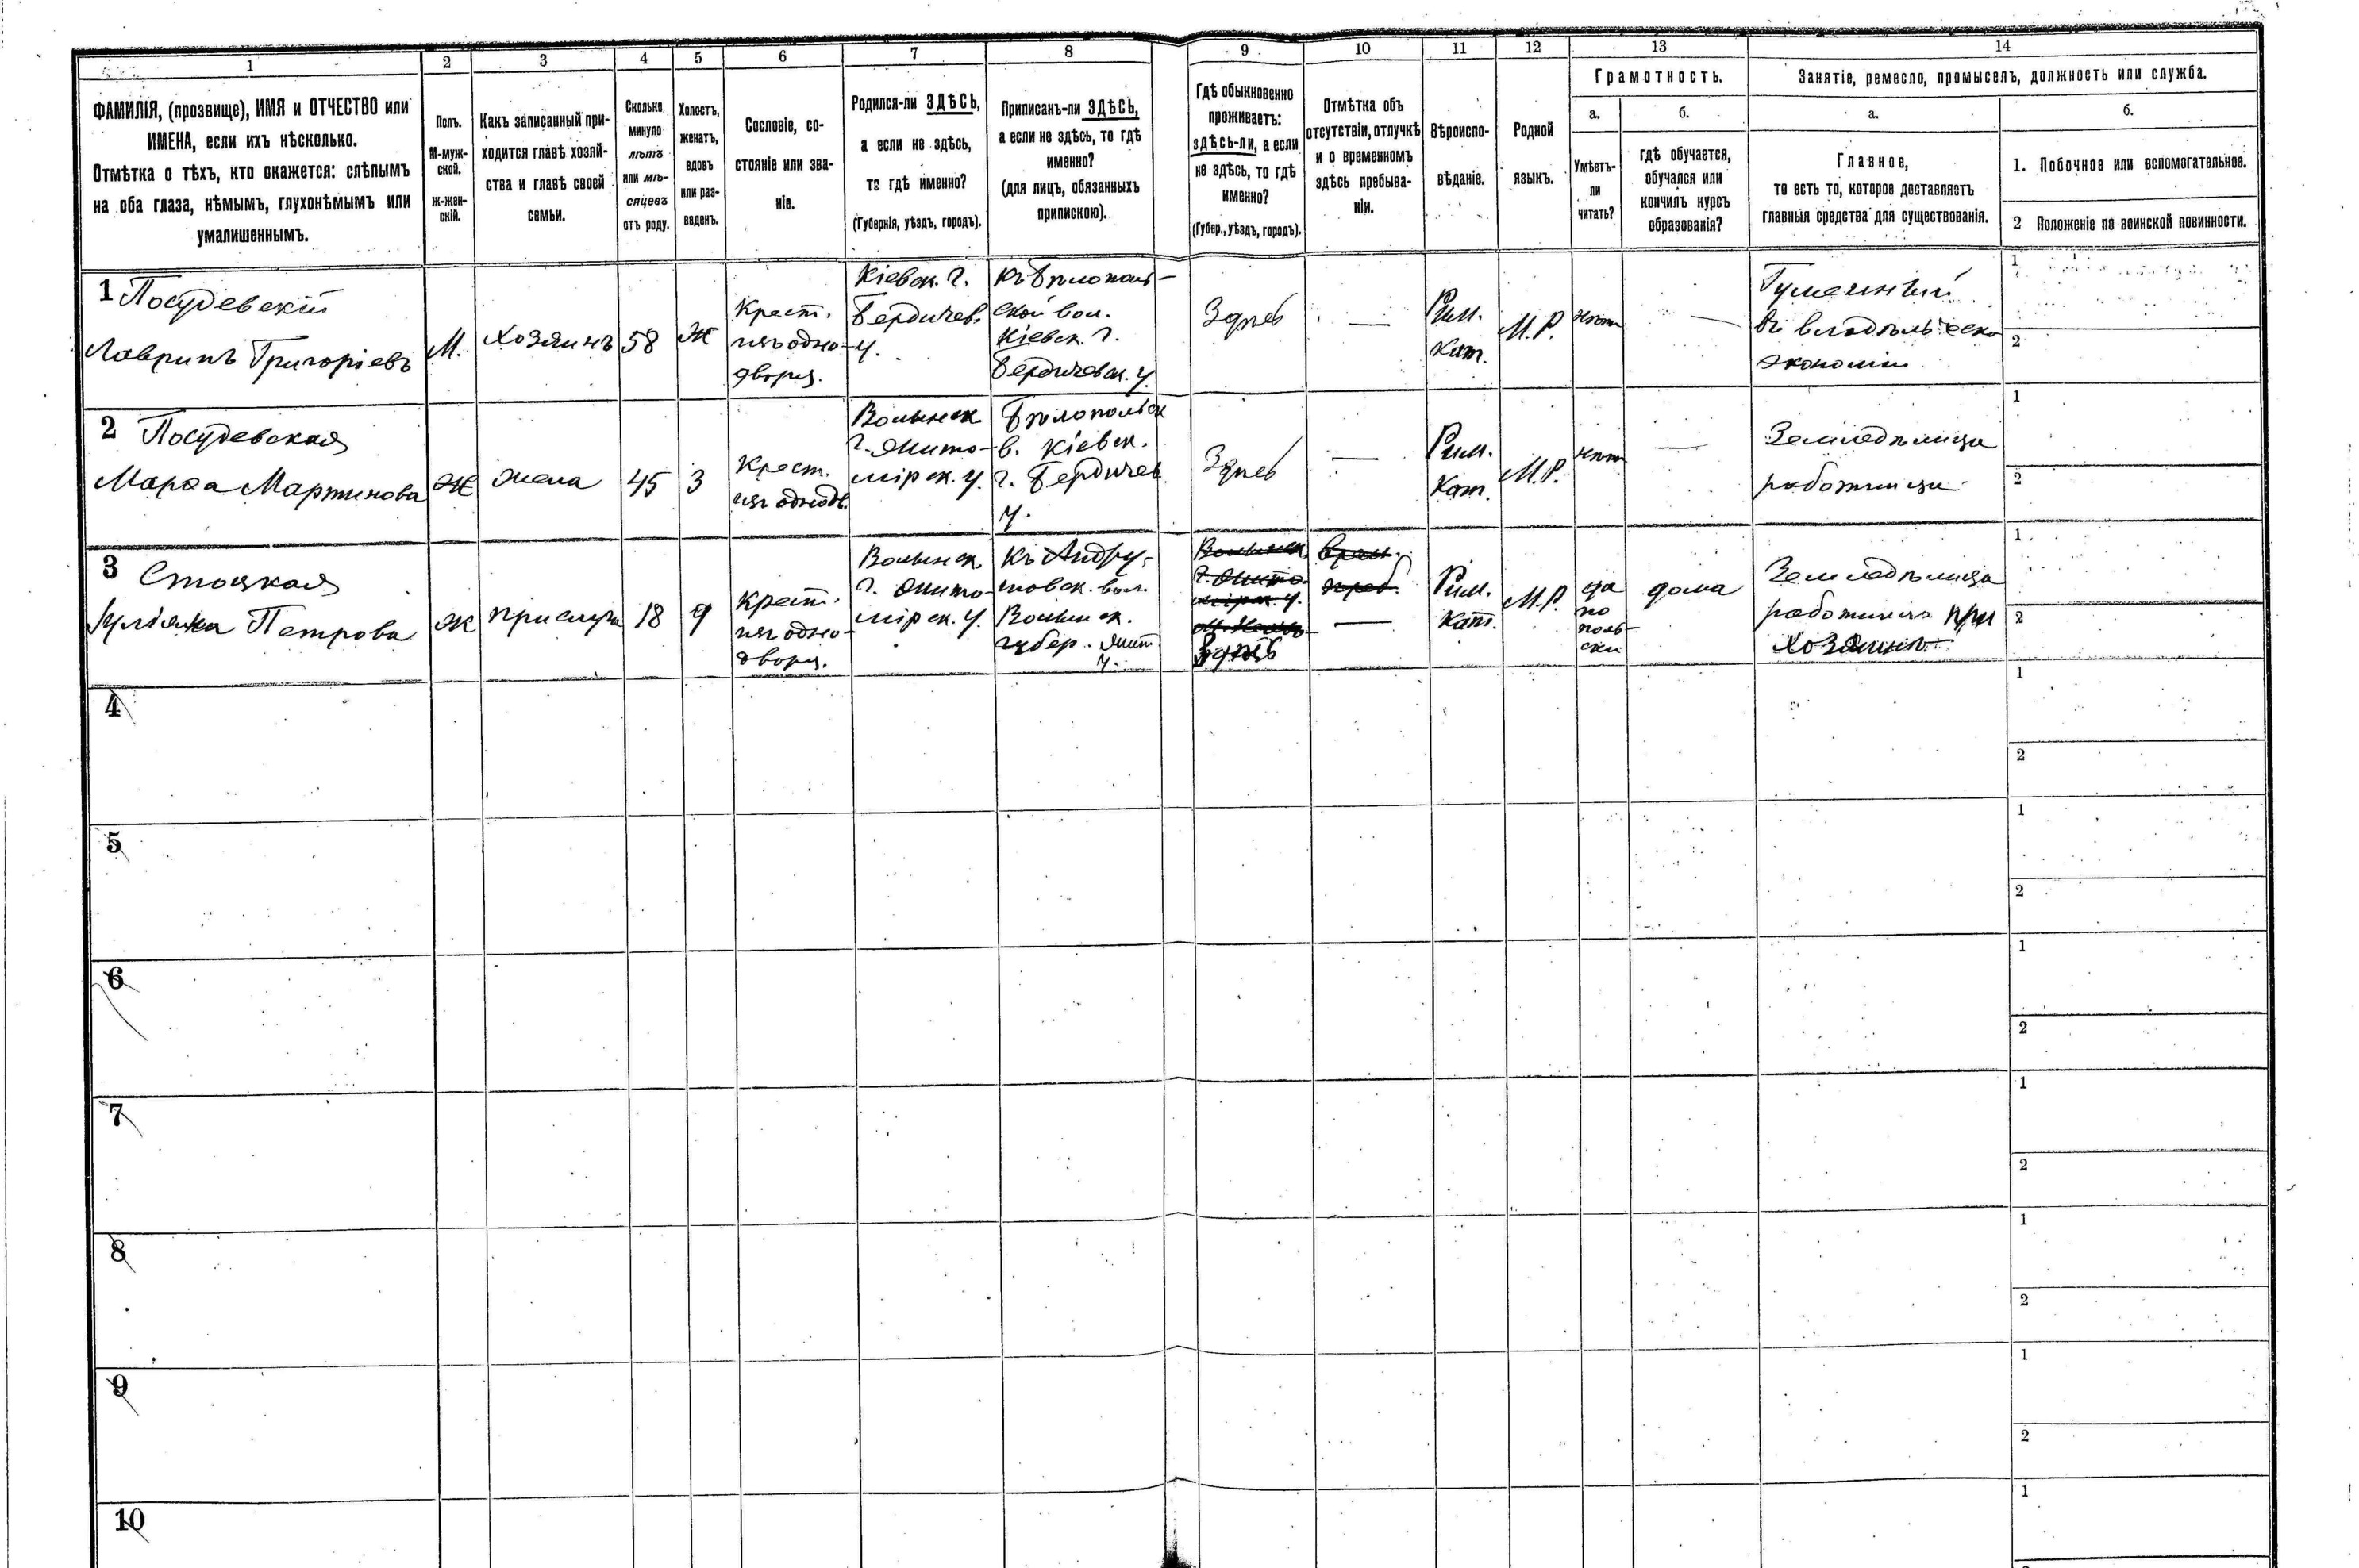 1 2 3 4 5 6 7 8 9 10 11 12 13 14
ФАМИЛІЯ, (прозвище), ИМЯ и ОТЧЕСТВО или
ИМЕНА, если ихъ нѣсколько.
Отмѣтка о тѣхъ, кто окажется: слѣпымъ
на оба глаза, нѣмымъ, глухонѣмымъ или
умалишеннымъ.
Полъ.
М-муж-
ской.
ж-жен-
скій.
Какъ записанный при-
ходится главѣ хозяй-
ства и главѣ своей
семьи.
Сколько
минуло
лѣтъ
или мѣ-
сяцевъ
отъ роду.
Холостъ,
женатъ,
вдовъ
или раз-
веденъ.
Сословіе, со-
стояніе или зва-
ніе.
Родился-ли ЗДѢСЬ,
а если не здѣсь,
то гдѣ именно?
(Губернія, уѣздъ, городъ).
Приписанъ-ли ЗДѢСЬ,
а если не здѣсь, то гдѣ
именно?
(для лицъ, обязанныхъ
припискою).
Гдѣ обыкновенно
проживаетъ:
здѣсь-ли, а если
не здѣсь, то гдѣ
именно?
(Губер., уѣздъ, городъ).
Отмѣтка объ
отсутствіи, отлучкѣ
и о временномъ
здѣсь пребыва-
ніи.
Вѣроиспо-
вѣданіе.
Родной
языкъ.
Грамотность.
а.
Умѣетъ-
ли
читать?
б.
гдѣ обучается,
обучался или
кончилъ курсъ
образованія?
Занятіе, ремесло, промыселъ, должность или служба.
а.
Главное,
то есть то, которое доставляетъ
главныя средства для существованія.
б.
1. Побочное или вспомогательное.
2 Положеніе по воинской повинности.
1 Посудевскій
Лавринъ Григоріевъ
М.
Хозяинъ
58
Ж
Крест.
изъ одно-
дворц.
Кіевск. г.
Бердичев.
у.
къ Бѣлополь-
ской вол.
Кіевск. г.
Бердичевск. у.
Здѣсь
—
Рим.
Кат.
М.Р.
нѣт
—
Гуменный
въ владѣльческо
экономіи
1
2
2 Посудевская
Марѳа Мартинова
Ж
жена
45
З
Крест.
изъ однодв.
Волынск
г. Жито-
мірск. у.
Бѣлопольск
в. Кіевск.
г. Бердичев
у.
Здѣсь
—
Рим.
Кат.
М.Р.
нѣт
—
Земледѣлица
работница
1
2
3 Стоцкая
Юліяна Петрова
Ж
прислуга
18
Д
Крест.
изъ одно-
дворц.
Волынск.
г. Жито-
мірск. у.
къ Андру-
шовск. вол.
Волынск.
губер. Жит
у.
Волынск.
г. Жито-
мірск. у.
Здѣсь
врем.
преб.
—
Рим.
Кат.
М.Р.
да
по
поль-
ски
дома
Земледѣлица
работница при
хозяинѣ
1
2
4
1
2
5
1
2
6
1
2
7
1
2
8
1
2
9
1
2
10
1